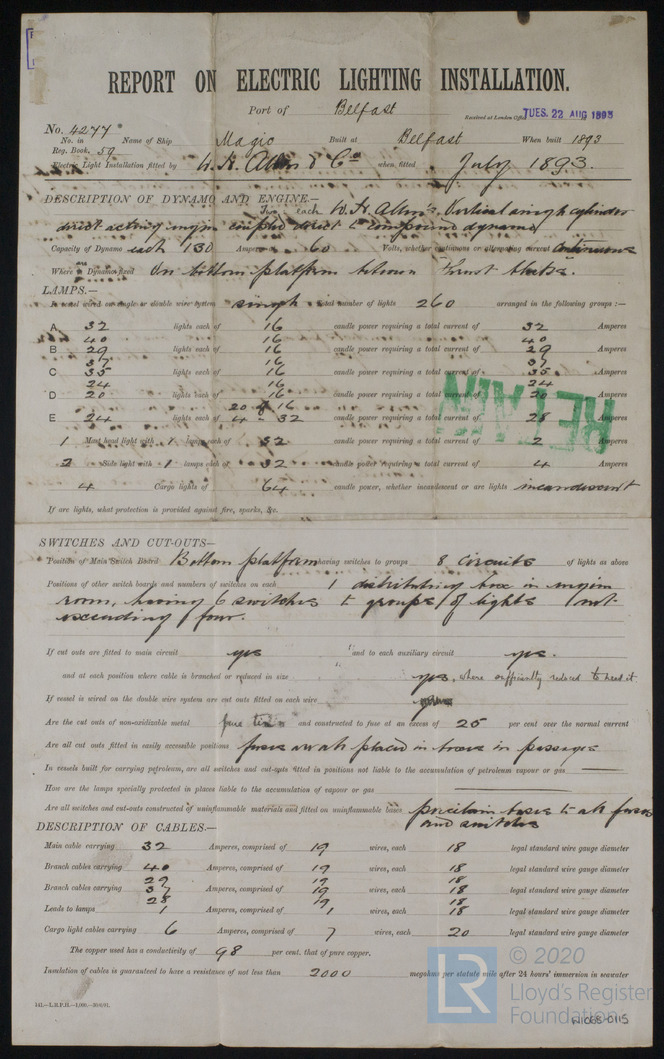 REPORT ON ELECTRIC LIGHTING INSTALLATION.
Port of Belfast
Received at London Office TUES. 22 AUG 1893
No. 4277
No. in Reg. Book. 59 Name of Ship Magic Built at Belfast When built 1893
Electric Light Installation fitted by W. H. Allen & Co when fitted July 1893.
DESCRIPTION OF DYNAMO AND ENGINE.—
Two each W. H. Allen's Vertical single cylinder
direct acting engine coupled direct to compound dynamo
Capacity of Dynamo each 130 Amperes at 60 Volts, whether continuous or alternating current Continuous
Where are Dynamos fixed On bottom platform between Thrust blocks.
LAMPS.—
Is vessel wired on single or double wire system single total number of lights 260 arranged in the following groups :—
A 32 lights each of 16 candle power requiring a total current of 32 Amperes
40 16 40
B 29 lights each of 16 candle power requiring a total current of 29 Amperes
37 16 37
C 35 lights each of 16 candle power requiring a total current of 35 Amperes
24 16 24
D 20 lights each of 16 candle power requiring a total current of 20 Amperes
20 of 16
E 24 lights each of 4 - 32 candle power requiring a total current of 28 Amperes
1 Mast head light with 1 lamps each of 32 candle power requiring a total current of 2 Amperes
2 Side light with 1 lamps each of 32 candle power requiring a total current of 4 Amperes
4 Cargo lights of 64 candle power, whether incandescent or arc lights incandescent
If arc lights, what protection is provided against fire, sparks, &c.
SWITCHES AND CUT-OUTS—
Position of Main Switch Board Bottom platform having switches to groups 8 circuits of lights as above
Positions of other switch boards and numbers of switches on each 1 distributing box in engine
room, having 6 switches to groups of lights not
exceeding four.
If cut outs are fitted to main circuit yes and to each auxiliary circuit yes.
and at each position where cable is branched or reduced in size yes, where sufficiently reduced to need it
If vessel is wired on the double wire system are cut outs fitted on each wire
Are the cut outs of non-oxidizable metal pure tin and constructed to fuse at an excess of 25 per cent over the normal current
Are all cut outs fitted in easily accessible positions fuses are all placed in boxes in passages
In vessels built for carrying petroleum, are all switches and cut-outs fitted in positions not liable to the accumulation of petroleum vapour or gas
How are the lamps specially protected in places liable to the accumulation of vapour or gas
Are all switches and cut-outs constructed of uninflammable materials and fitted on uninflammable bases porcelain bases to all fuses
and switches
DESCRIPTION OF CABLES.—
Main cable carrying 32 Amperes, comprised of 19 wires, each 18 legal standard wire gauge diameter
Branch cables carrying 40 Amperes, comprised of 19 wires, each 18 legal standard wire gauge diameter
29 19 18
Branch cables carrying 37 Amperes, comprised of 19 wires, each 18 legal standard wire gauge diameter
28 19 18
Leads to lamps 1 Amperes, comprised of 1 wires, each 18 legal standard wire gauge diameter
Cargo light cables carrying 6 Amperes, comprised of 7 wires, each 20 legal standard wire gauge diameter
The copper used has a conductivity of 98 per cent. that of pure copper.
Insulation of cables is guaranteed to have a resistance of not less than 2000 megohms per statute mile after 24 hours' immersion in seawater
LR © 2020
Lloyd's Register
Foundation
W1068-0115